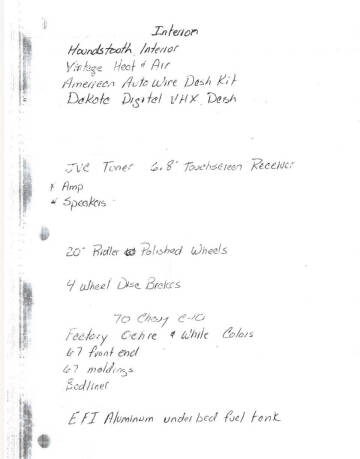 Interior
Houndstooth Interior
Vintage Heat & Air
American Auto Wire Dash Kit
Dakota Digital VHX Dash
JVC Tuner 6.8" Touchscreen Receiver
& Amp
& Speakers
20" Ridler Polished Wheels
4 Wheel Disc Brakes
70 Chevy C-10
Factory Ochre & White Colors
67 front end
67 moldings
Bedliner
EFI Aluminum underbed fuel tank